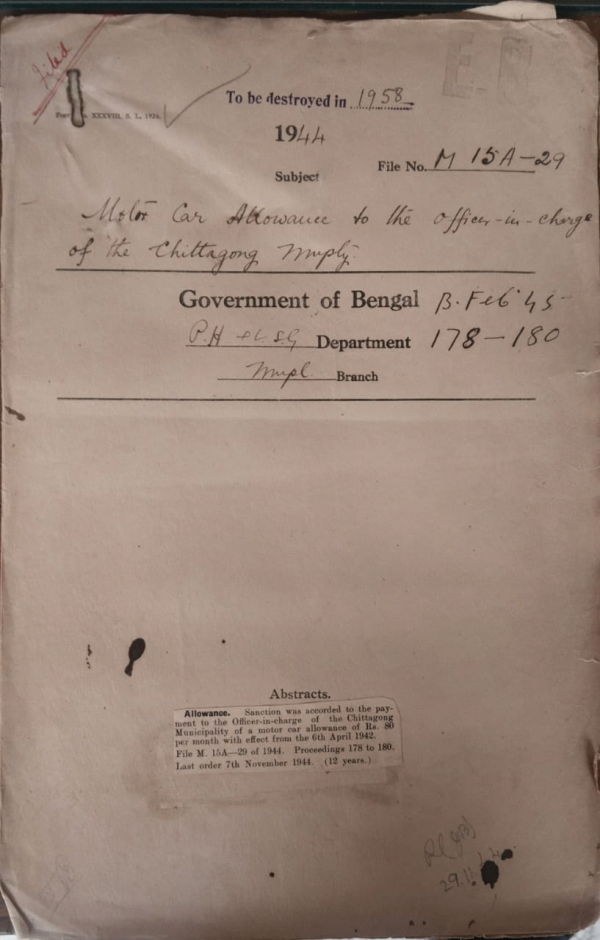 Filed
XXXVIII, S. I., 1936.
To be destroyed in 1958
1944
File No. M 15A-29
Subject
Motor Car Allowance to the officer-in-charge
of the Chittagong Muply.
Government of Bengal B. Feb 45
P.H & L.S.G Department 178-180
Mupl Branch
Abstracts.
Allowance. Sanction was accorded to the pay-
ment to the Officer-in-charge of the Chittagong
Municipality of a motor car allowance of Rs. 80
per month with effect from the 6th April 1942.
File M. 15A—29 of 1944. Proceedings 178 to 180.
Last order 7th November 1944. (12 years.)